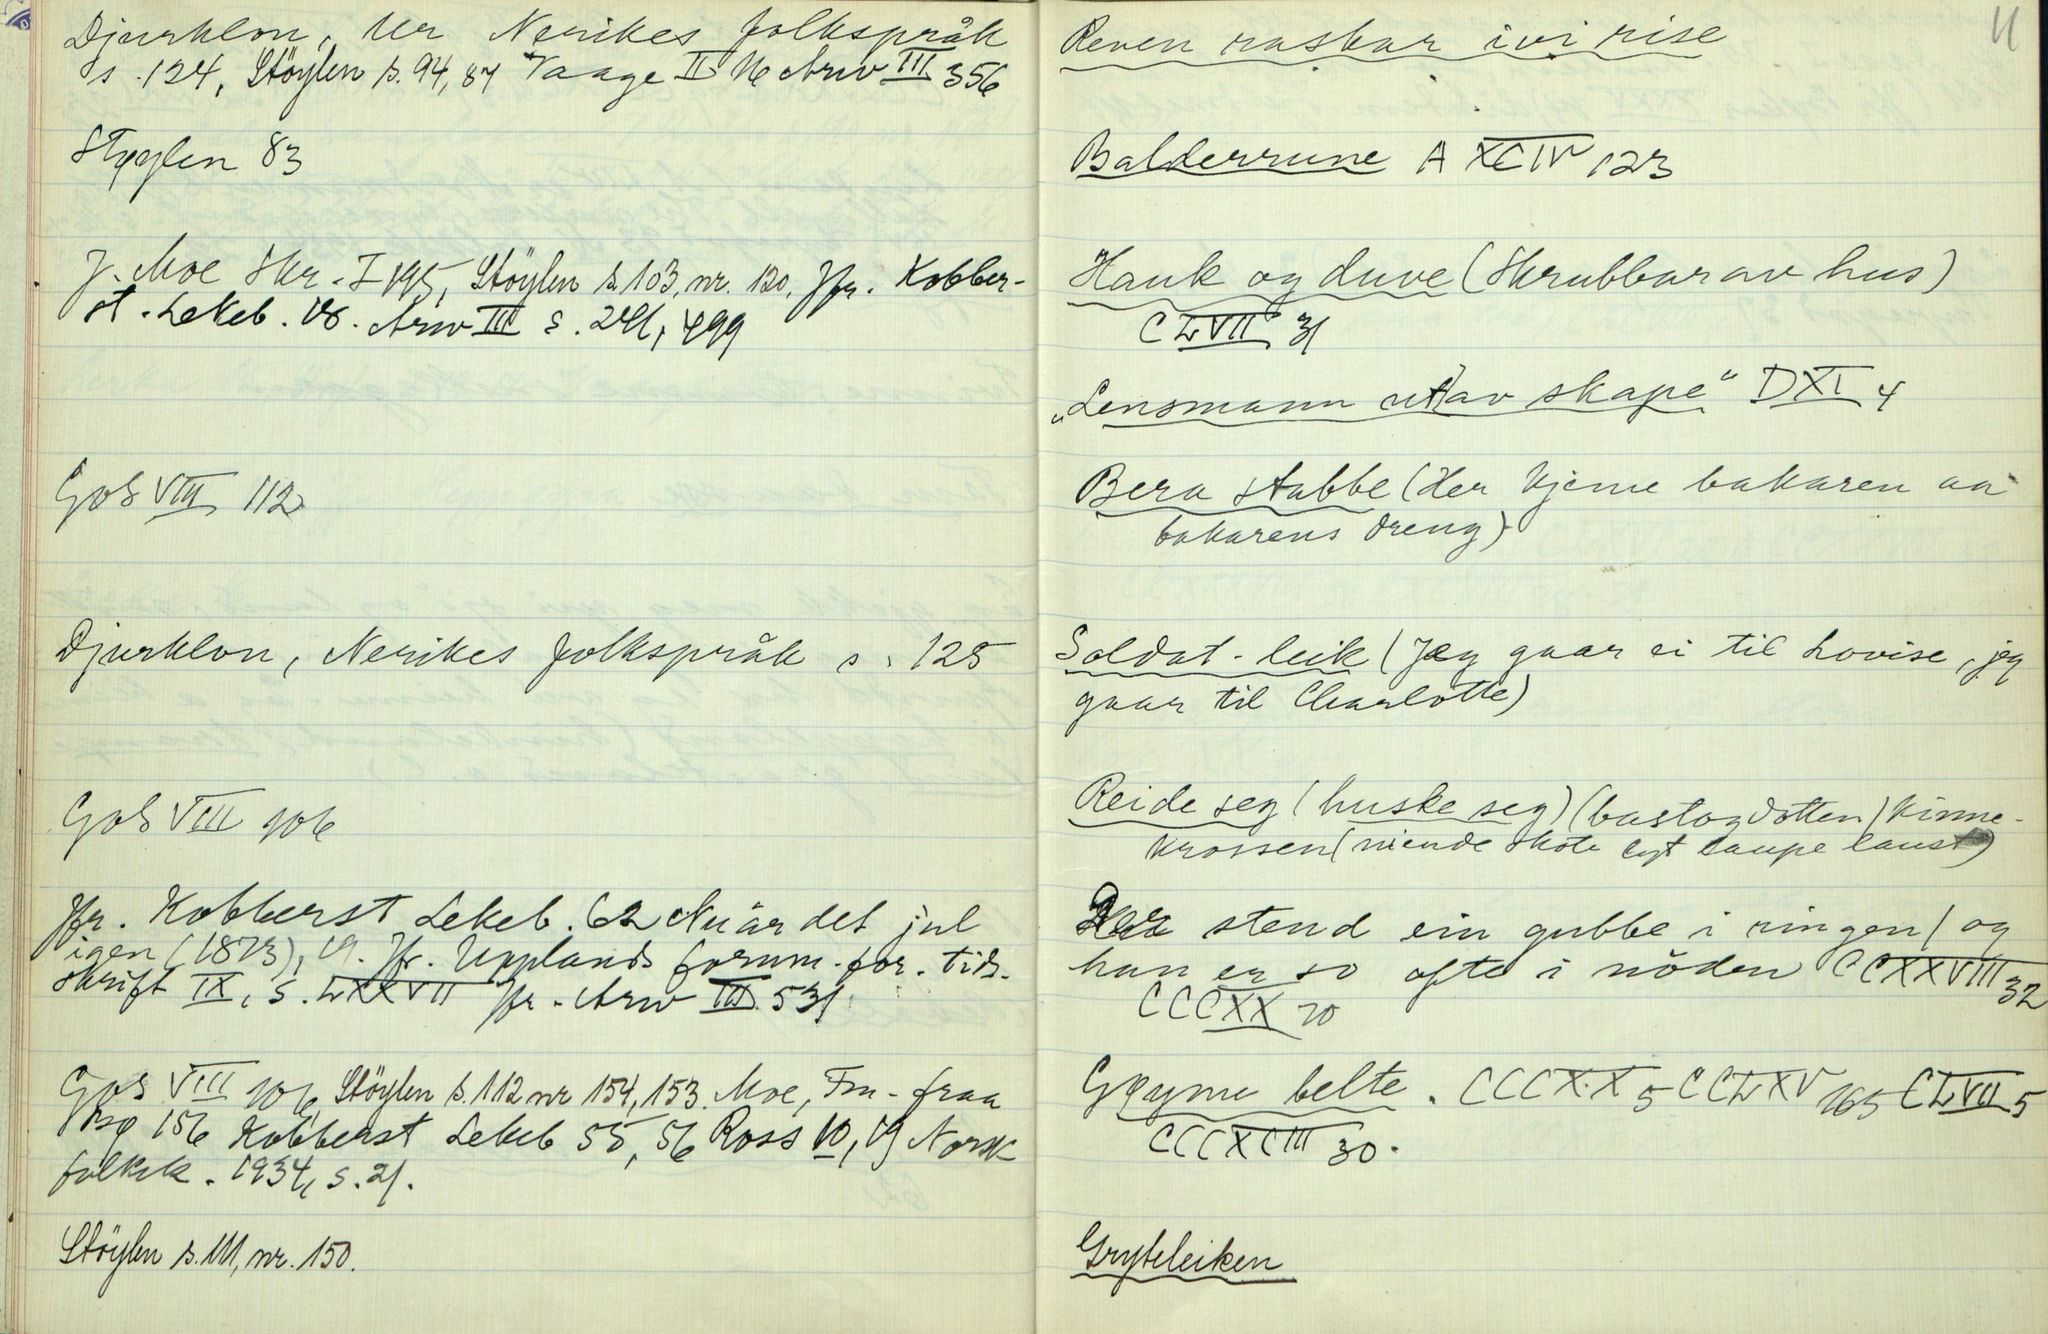 Djurklou, Ur Nerikes folkspråk
s. 124, Støylen s. 94, 87 Vaage II 16 Arw III 356
Støylen 83
J. Moe Skr. I 195, Støylen s. 103, nr. 130, Jfr. Kobber-
st. Lekeb. 18. Arw III s. 241, 499
GoS VIII 112
Djurklou, Nerikes folkspråk s. 125
GoS VIII 106
Jfr. Kobberst Lekeb. 62 Nu är det jul
igen (1873), 19. Jfr. Upplands fornm. för. tids-
skrift IX, s. LXXVII Jfr. Arw III. 531
GoS VIII 106, Støylen s. 112 nr 154, 153. Moe, Fm. fraa
156 Kobberst Lekeb 55, 56 Ross 10, 19 Norsk
folkek. 1934, s. 21.
Støylen s. 111, nr. 150.
11
Reven raskar ivi rise
Balderrune A XCIV 123
Hauk og duve (Skrubbar av hus)
CLVII 31
"Lensmann ut av skape" DXI 4
Bera stabbe (Her kjeme bakaren aa
bakarens dreng)
Soldat-leik (Jeg gaar ei til Lovise, jeg
gaar til Charlotte)
Reide seg (huske seg) (bastogdotten) Kinne-
krossen (niende skote lyt laupe laust)
Der stend ein gubbe i ringen / og
han er so ofte i nöden CCXXVIII 32
CCCXX 70
Gøyme belte. CCCXX 5 CCLXV 165 CLVII 5
CCCXCIII 30.
Gryteleiken